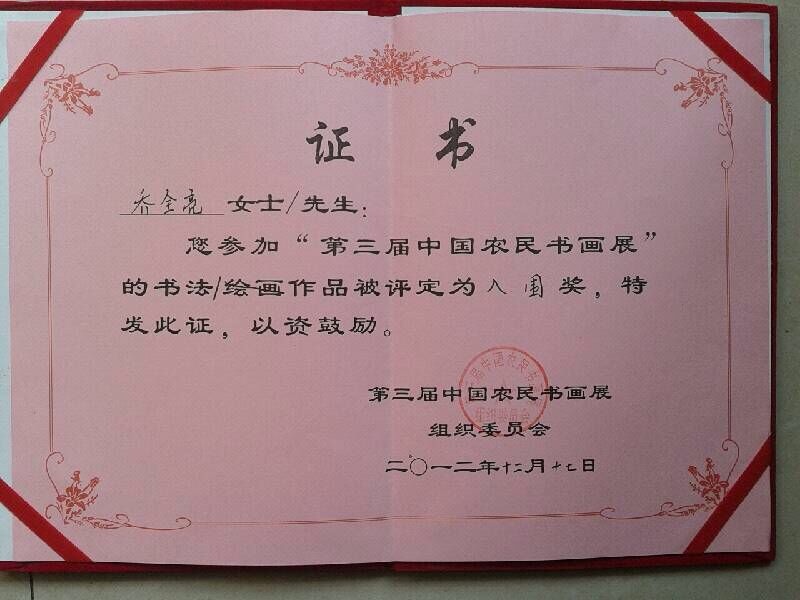 证 书
乔全亮 女士/先生：
您参加“第三届中国农民书画展”
的书法/绘画作品被评定为入围奖，特
发此证，以资鼓励。
第三届中国农民书画展
组织委员会
二〇一二年十二月十七日